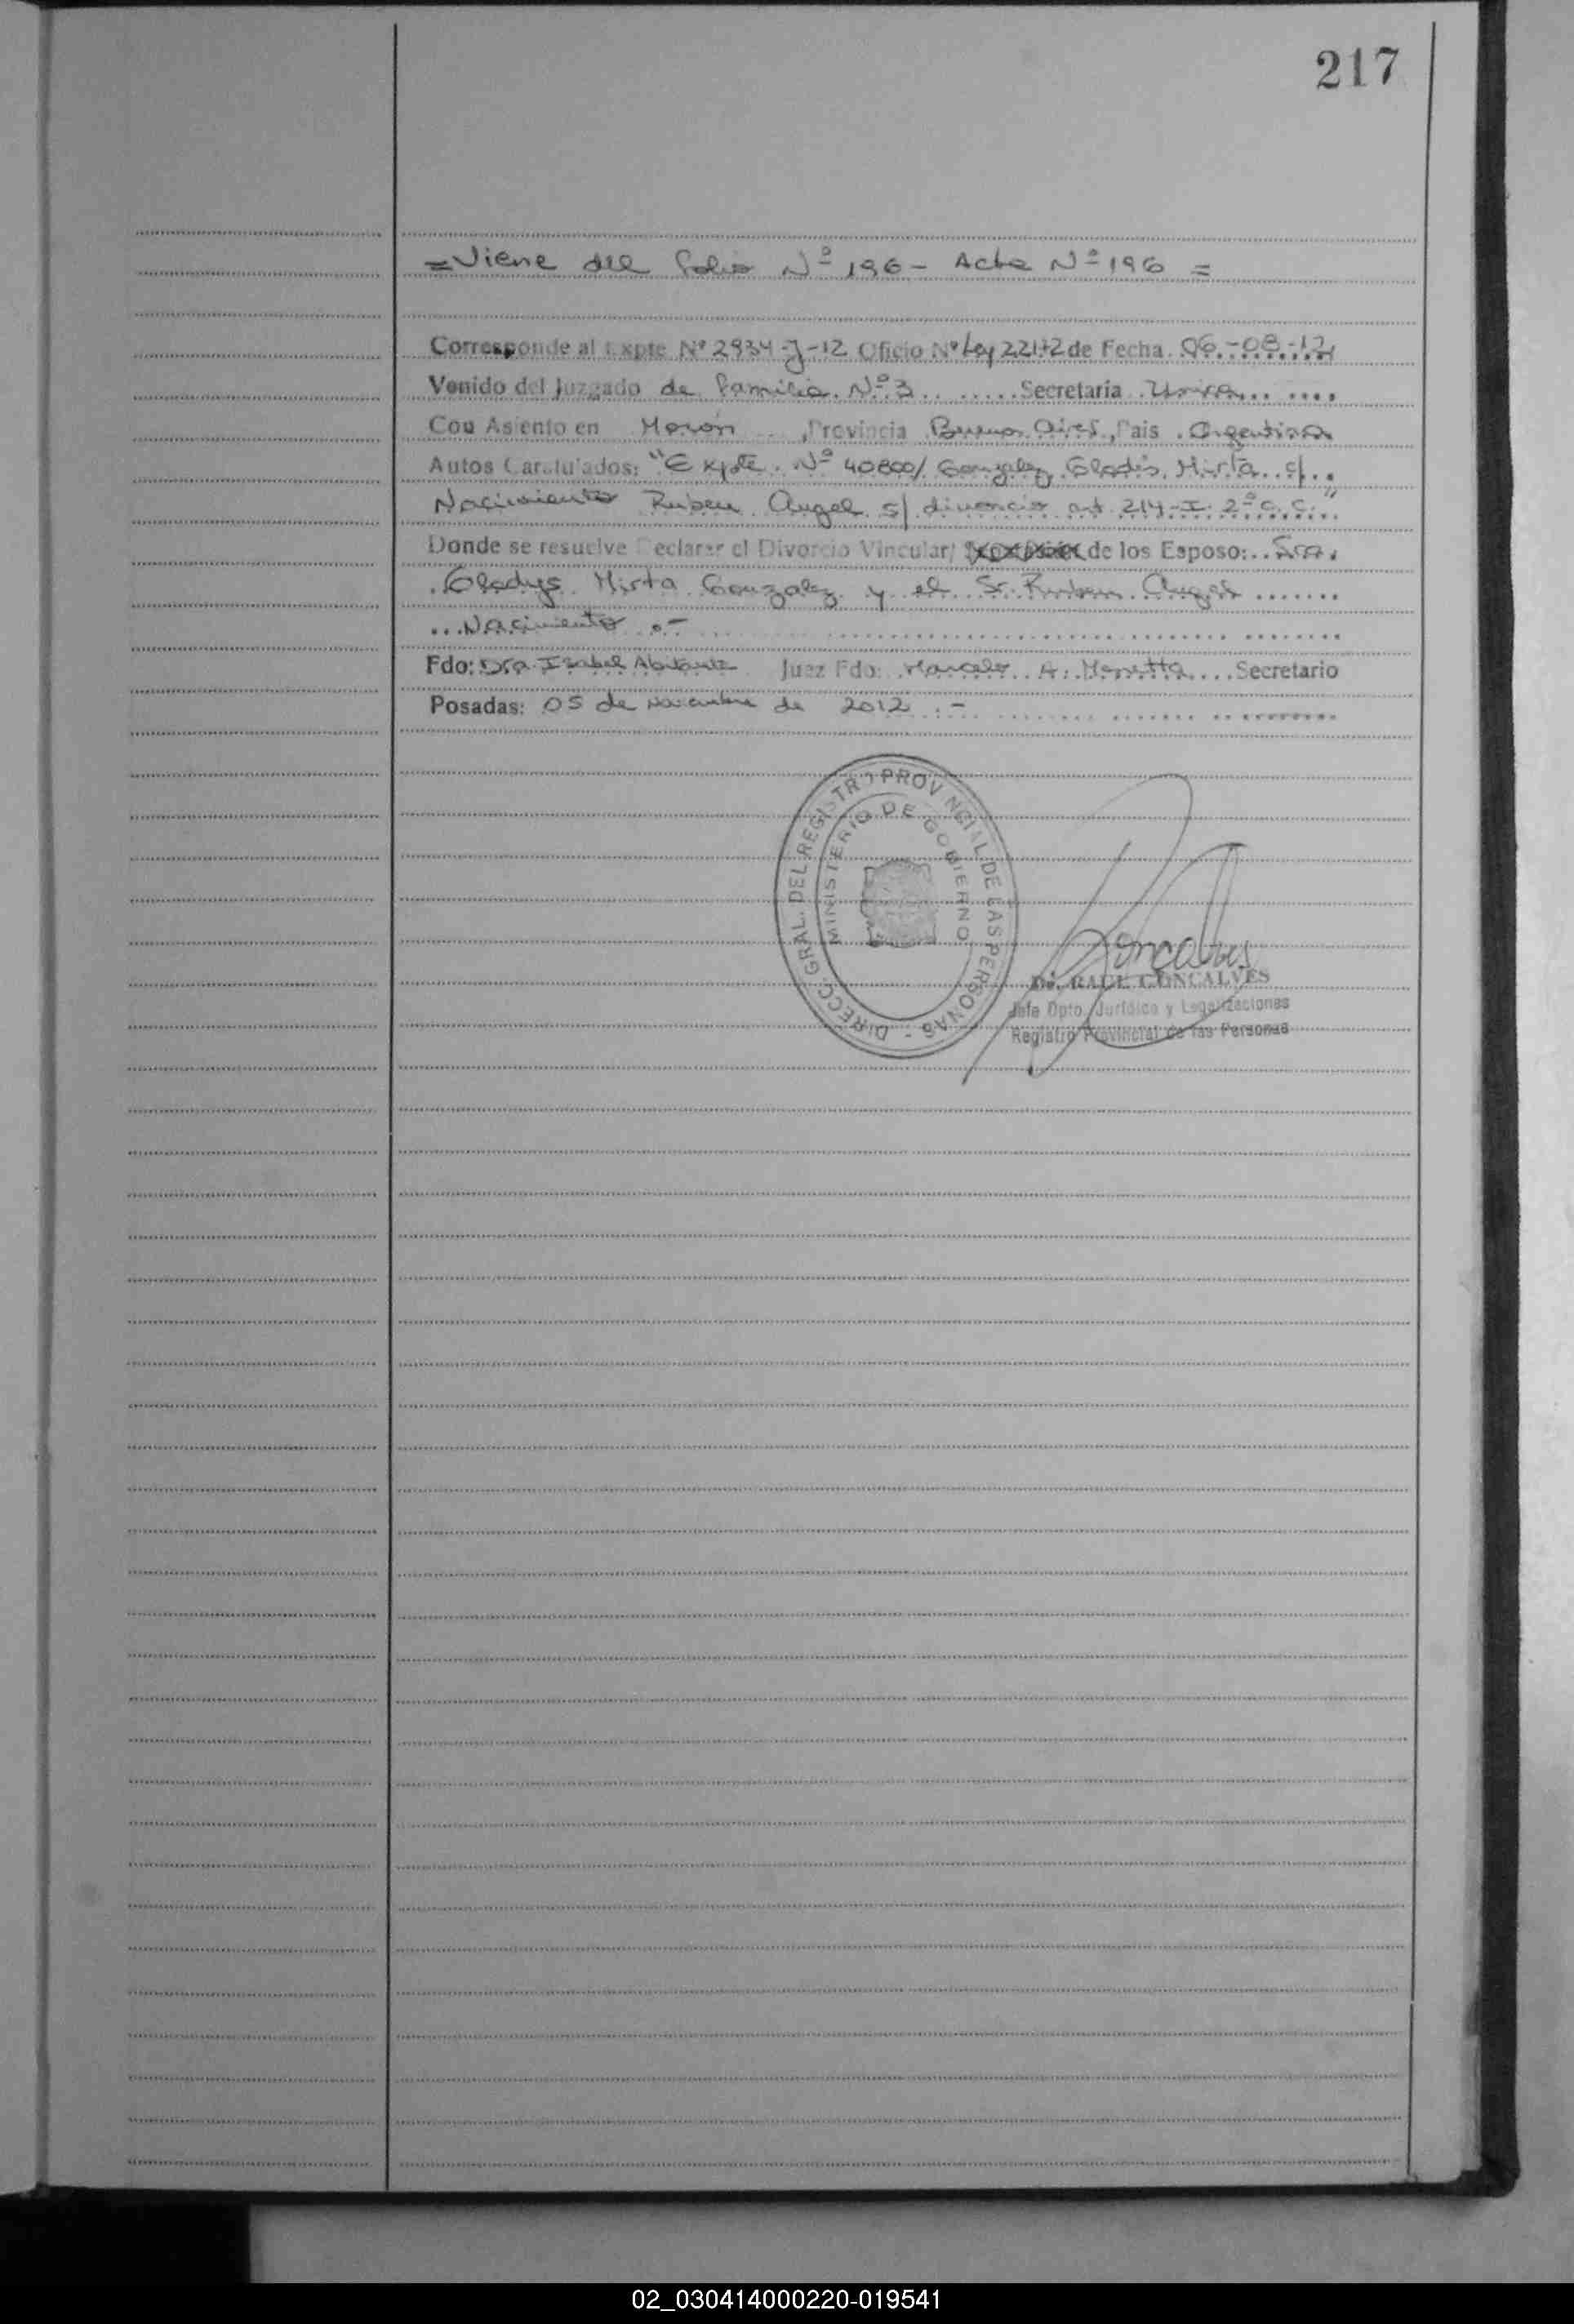 217
=Viene del folio Nº 196 - Acta Nº 196 =
Corresponde al Expte Nº 2934-J-12 Oficio Nº Ley 22172 de Fecha 06-08-12,
Venido del Juzgado de familia Nº 3 ...... Secretaría Unica... ....
Con Asiento en Morón ..., Provincia Buenos Aires, Pais Argentina
Autos Caratulados: "Expte. Nº 40800/ Gonzalez Gladis Mirta c/..
Nacimiento Ruben Angel s/ divorcio art 214-I 2º C.C."
Donde se resuelve Declarar el Divorcio Vincular/ de los Esposo: Sra.
Gladys Mirta Gonzalez y el Sr. Ruben Angel .......
...Nacimiento .-
Fdo: Dra Isabel Juez Fdo: Marcelo A. .... Secretario
Posadas: 05 de Noviembre de 2012 .-
DIRECC. GRAL. DEL REGISTRO PROVINCIAL DE LAS PERSONAS -
MINISTERIO DE GOBIERNO
Goncalves
Dr. RAUL GONCALVES
Jefe Dpto. Jurídico y Legalizaciones
Registro Provincial de las Personas
02_030414000220-019541